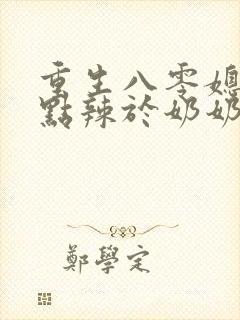 重生八零媳
點辣於奶奶
鄭學定